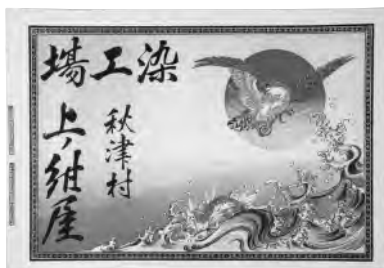 染工場
秋津村
上ノ紺屋